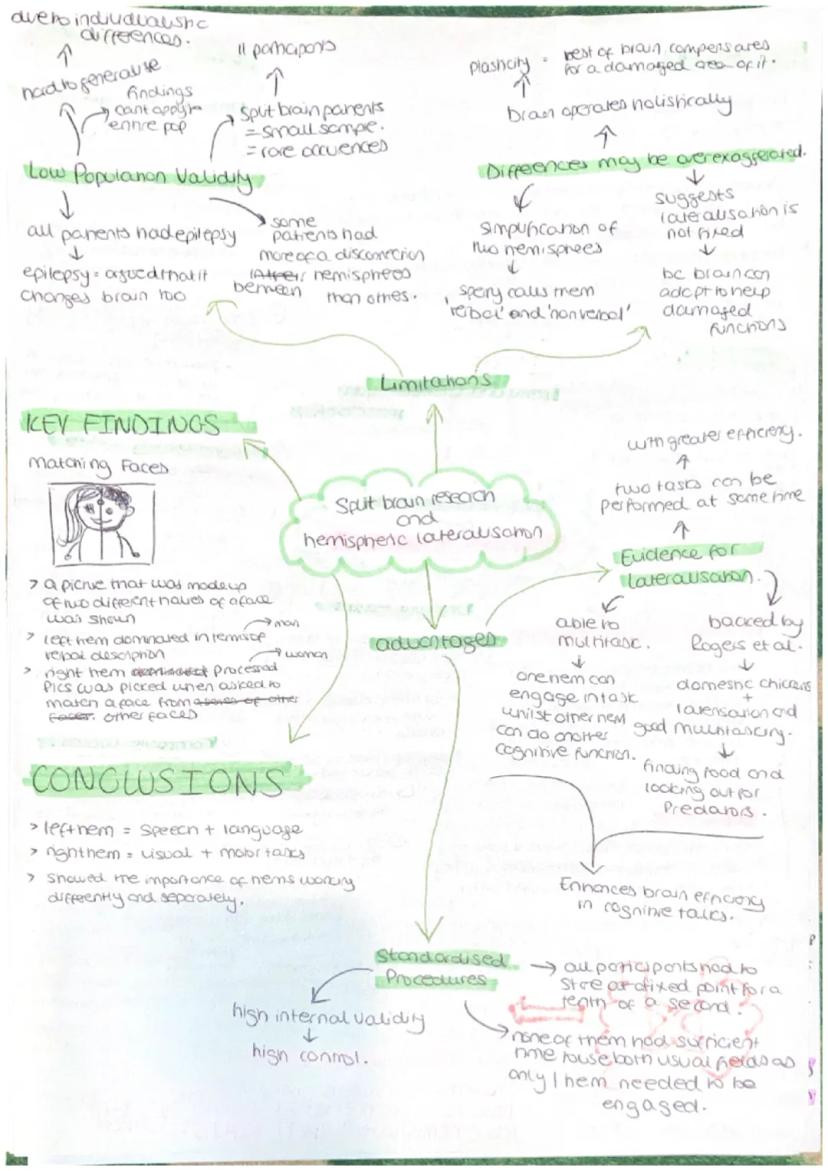 due to individualistic
differences.
hard to generalise
findings
cant apply to
entire pop
11 participants
split brain patients
= small sample.
= rare occurences
Low Population Validity
all patients had epilepsy
epilepsy = argued that it
changes brain too
some
patients had
more of a disconnection
hemispheres
between
than others.
plasticity = rest of brain compensates
for a damaged area of it.
brain operates holistically
Differences may be overexaggerated.
simplification of
two hemispheres
sperry calls them
'verbal' and 'nonverbal'
suggests
lateralisation is
not fixed
bc brain can
adapt to help
damaged
functions
Limitations
KEY FINDINGS
Matching Faces
> a picture that was made up
of two different halves of a face
was shown
> left hem dominated in terms of
verbal description
→ man
> right hem dominated processed
→ woman
pics was picked when asked to
match a face from a series of other
faces. other faces
Split brain research
and
hemispheric lateralisation
advantages
with greater efficiency.
two tasks can be
performed at same time
Evidence for
lateralisation.
able to
multitask.
one hem can
engage in task
whilst other hem
can do another
cognitive function.
backed by
Rogers et al.
domestic chickens
+
laterisation and
good multitasking.
finding food and
looking out for
predators.
Enhances brain efficiency
in cognitive talks.
CONCLUSIONS
> left hem = speech + language
> right hem = visual + motor tasks
> showed the importance of hems working
differently and seperately.
Standardised
Procedures
high internal validity
high control.
→ all participants had to
stare at fixed point for a
tenth of a second.
none of them had sufficient
time to use both visual fields as
only 1 hem needed to be
engaged.